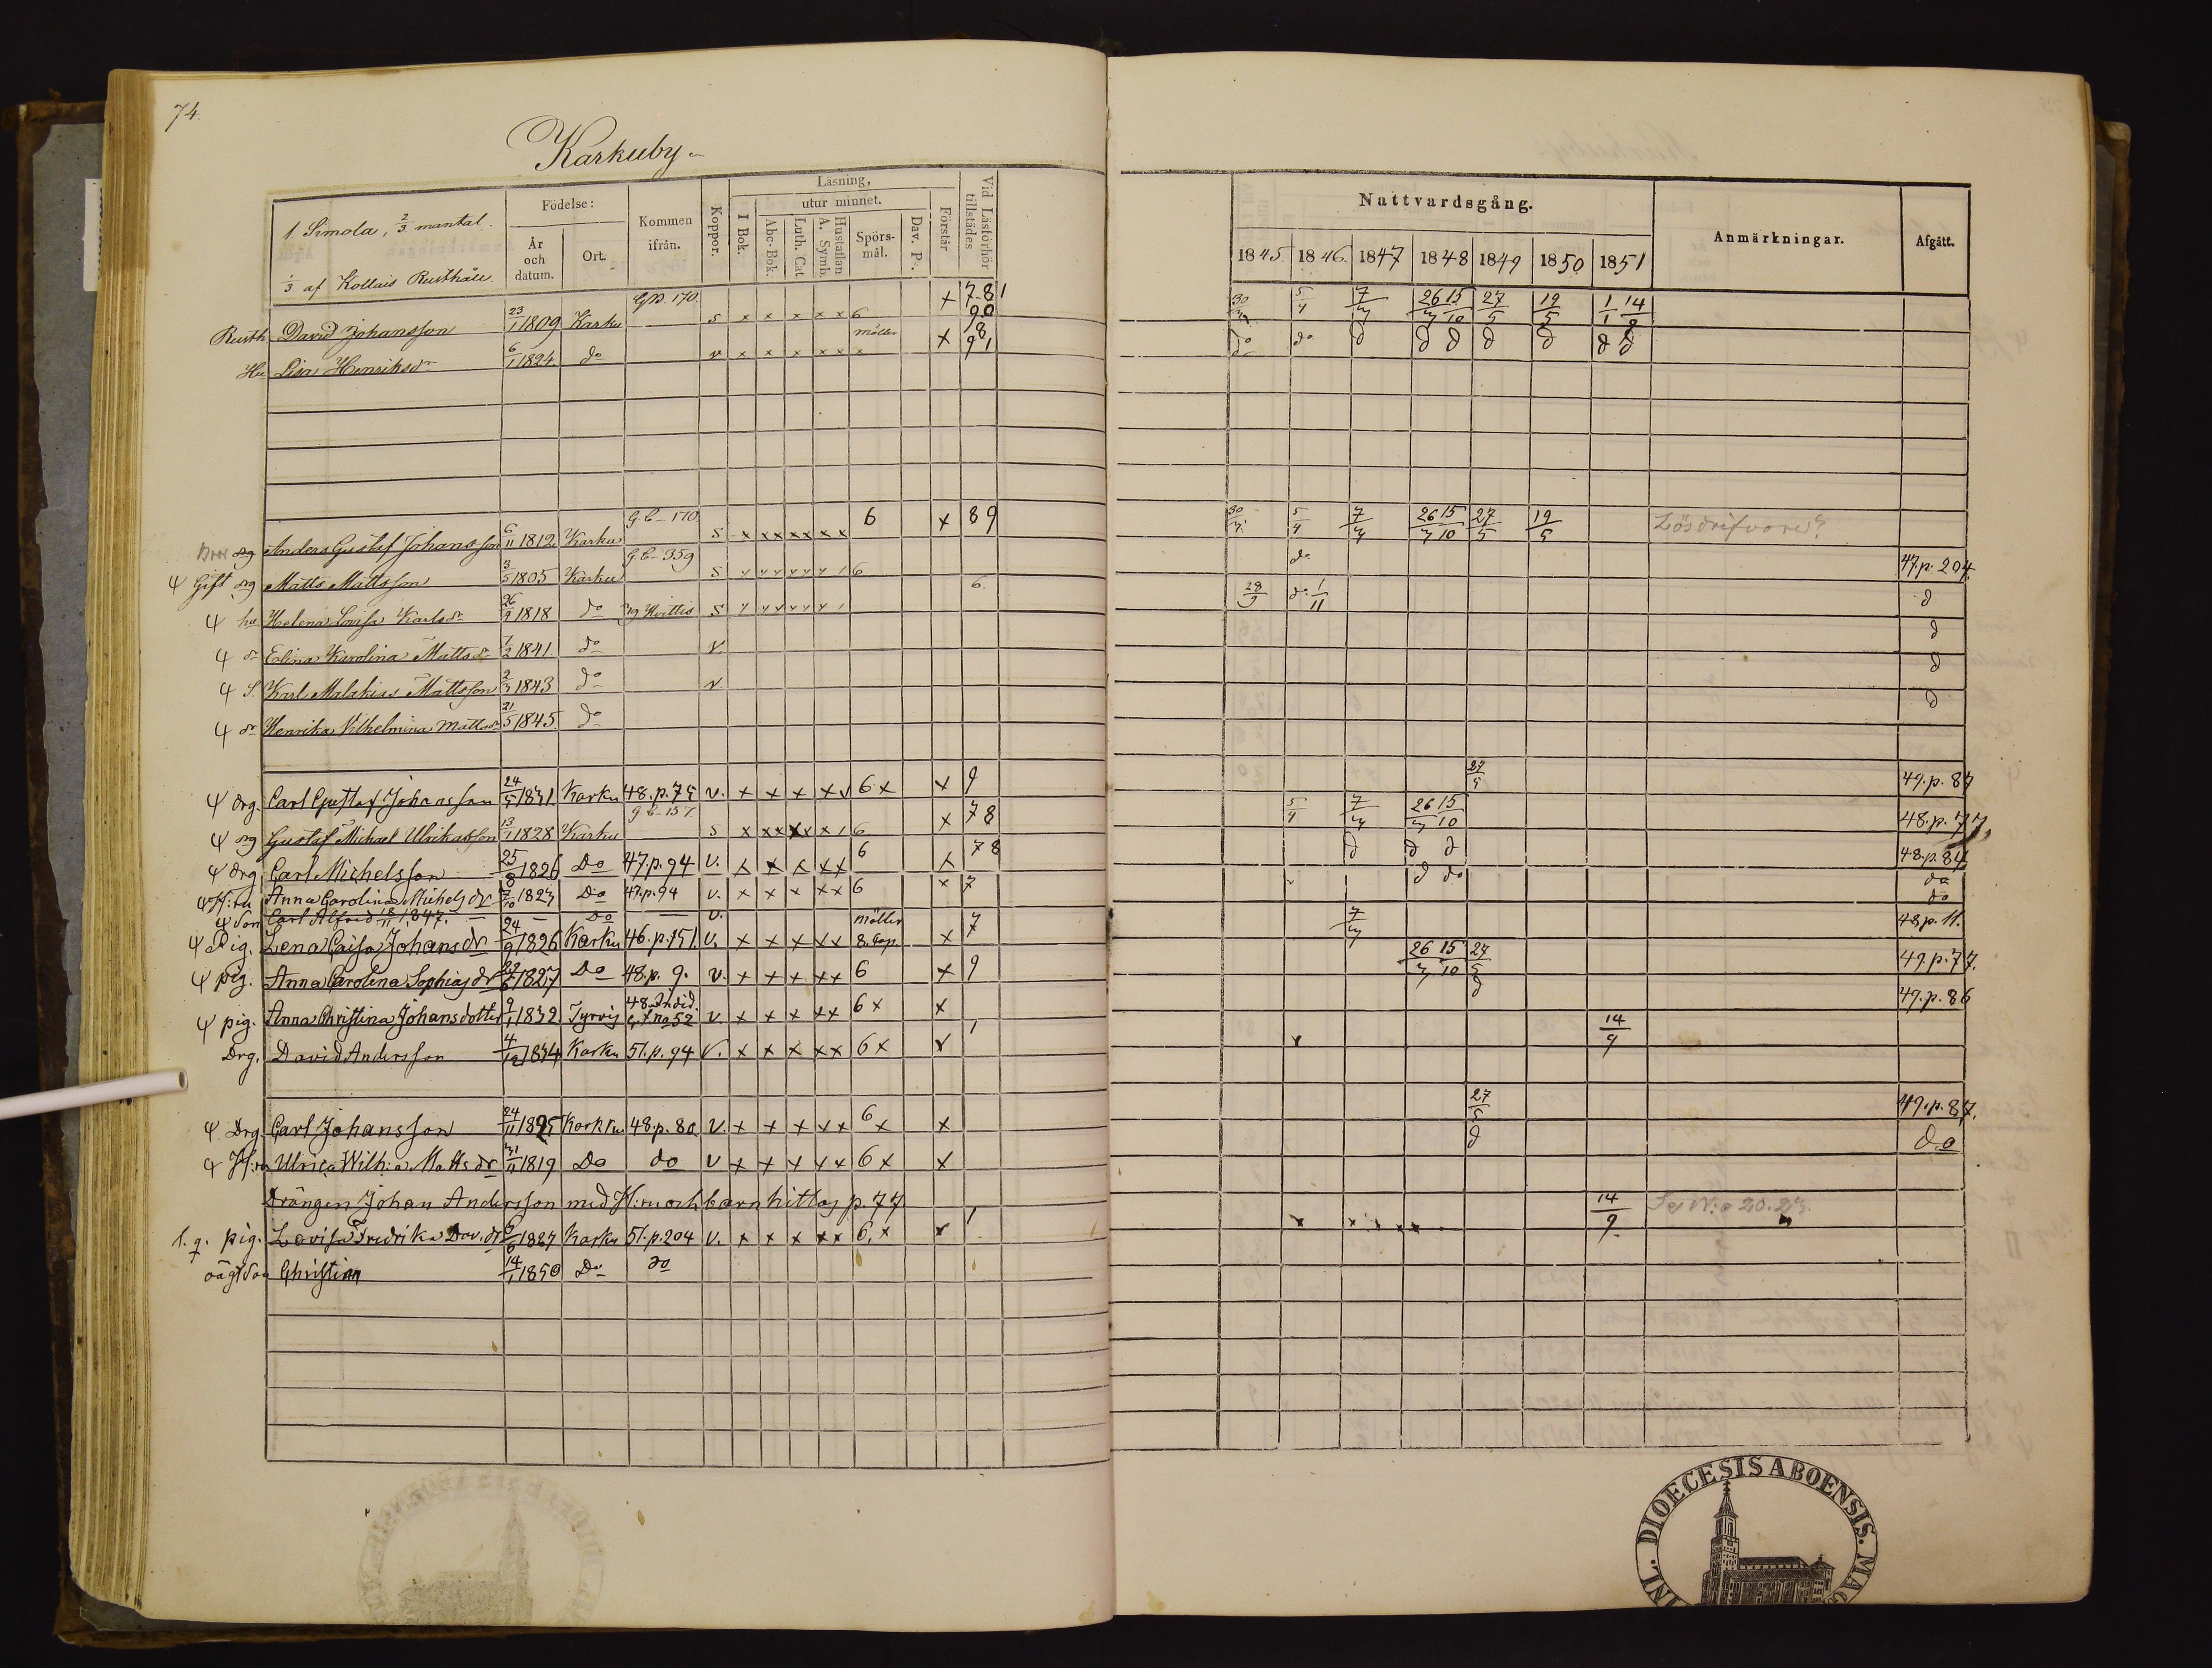 74.
Karkuby
1. Simola, 2/3 mantal.
1/3 af Kollais Rusthåll.
Födelse:
År och datum.
Ort.
Kommen ifrån.
Koppor.
Läsning,
I Bok.
utur minnet.
Abc-Bok.
Luth. Cat.
A. Symb.
Hustaflan
Spörsmål.
Dav. P.
Förstår
Vid Läsförhör tillstädes
Nattvardsgång.
1845. 1846. 1847 1848 1849 1850 1851
Anmärkningar.
Afgått.
Rusth David Johansson 23/1 1809 Karku GB. 170. s x x x x x 6 x 7.81 90 30/ 5/4 7/ 26 15/10 27/5 19/5 1/1 14/9
Hu Lisa Henriksdr 6/1 1824. do v x x x x x x möller x 8 91 do do d d d d d d d
drg Anders Gustaf Johansson 6/11 1812 Karku G.B-170 s x x x x x x 6 x 89 30/ 5/4 7/ 26 15/10 27/5 19/5 Lösdrifvare?
ψ Gift drg Matts Mattsson 3/5 1805 Karku G.B-359 s 6 do 47.p. 204.
ψ hu Helena Lovisa Karlsdr 26/9 1818 do Hvittis s 6. 28/9 do 1/11 d
ψ dr Elina Karolina Mattsdr 7/2 1841 do v d
ψ S. Karl Malakias Mattsson 2/3 1843 do v d
ψ dr Henrika Vilhelmina Mattsdr 21/5 1845 do d
ψ drg. Carl Gustaf Johansson 24/5 1831 Karku 48.p.75 v. x x x x x 6 x x 9 27/5 49.p. 87
ψ drg Gustaf Michael Ulrikasson 13/1 1828 Karku G B-157. s x x x x x 6 x 78 5/4 7/ 26 15/10 48.p. 77
ψ drg Carl Michelsson 25/8 1826 Do 47.p.94 v. x x x x x 6 x 78 d d d 48.p.84
ψ H:ru Anna Carolina Michelsdr 7/10 1823 Do 47.p.94 v. x x x x x 6 x 7 d do do
ψ Son Carl Alfred 18/11 1847. Do v. do
ψ Pig. Lena Caisa Johansdr 24/9 1826 Karku 46.p.151. v. x x x x x möller 8. Cap. x 7 7/ 48 p. 11.
ψ pig. Anna Carolina Sophiasdr 1827 Do 48.p. 9. v. x x x x x 6 x 9 26 15/10 27/5 49.p.77.
ψ pig. Anna Christina Johansdotter 9/1 1832 Tyrvis 48 No 52 v x x x x x 6 x x d 49.p. 86
Drg. David Andersson 4/12 1834 Karku 51.p.94 v. x x x x x 6 x x 1 14/9
ψ Drg. Carl Johansson 24/11 1825 Karku 48.p. 80. v. x x x x x 6 x x 27/5 49.p.87.
ψ H:ru Ulrica Wilh:a Mattsdr 1819 Do do v x x x x x 6 x x d do
Drängen Johan Andersson med H:ru och barn hittas p. 77
pig. Lovisa Fredrika Dav.dr 1827 Karku 51.p.204 v. x x x x x 6. x x 1 14/9 Se N:o 20.
oägt son Christian 14/1 1850 Do do
DIOECESIS ABOENSIS. MAG